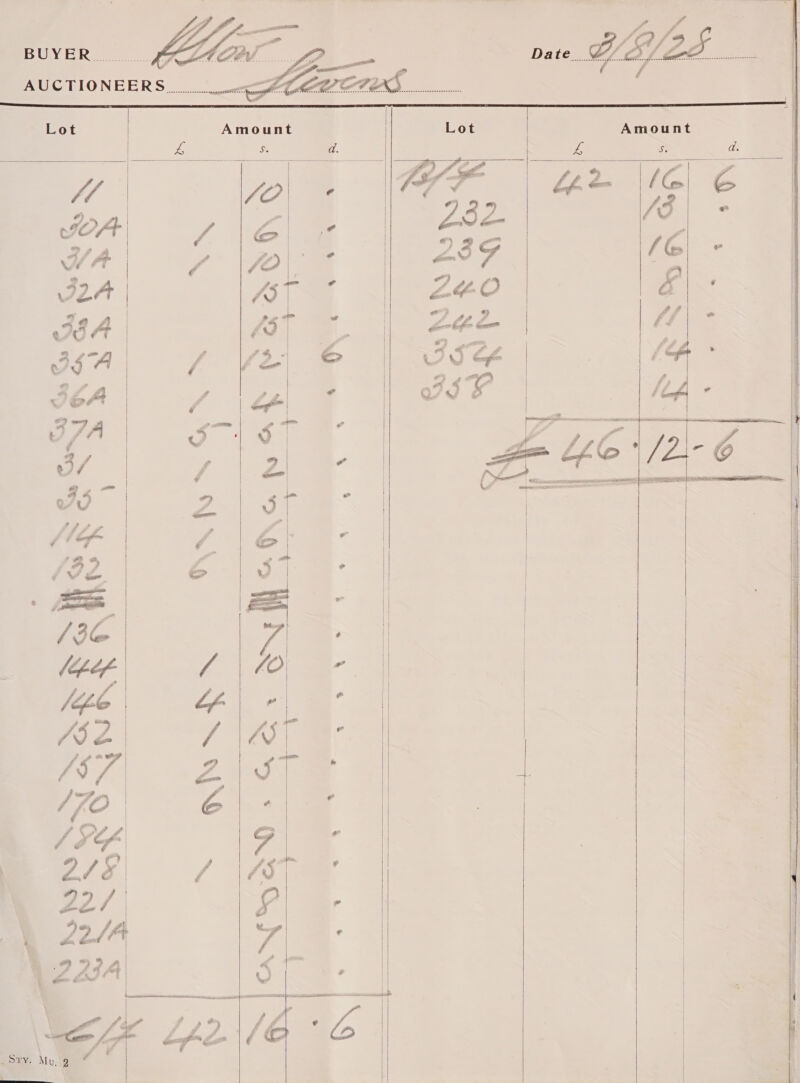 BUYER Date 3/8/28
AUCTIONEERS Stevens
Lot Amount Lot Amount
£ s. d. £ s. d.
11 10 -
30A 1 6 -
31A 1 10 -
32A 15 -
33A 15 -
35A 1 12 6
36A 1 4 -
37A 5 5 -
31 1 2 -
35 2 5 -
114 1 6 -
132 6 5 -
136 7 -
144 1 10 -
146 4 - -
152 1 15 -
157 2 5 -
170 6 - -
184 9 -
218 1 15 -
221 8 -
221A 7 -
223A 5 -
C/F 42 16 - 6
Sty. Mu. 2
B/F 42 16 6
232 13 -
239 16 -
240 8 -
242 11 -
354 14 -
358 14 -
£ 46 - 12 - 6